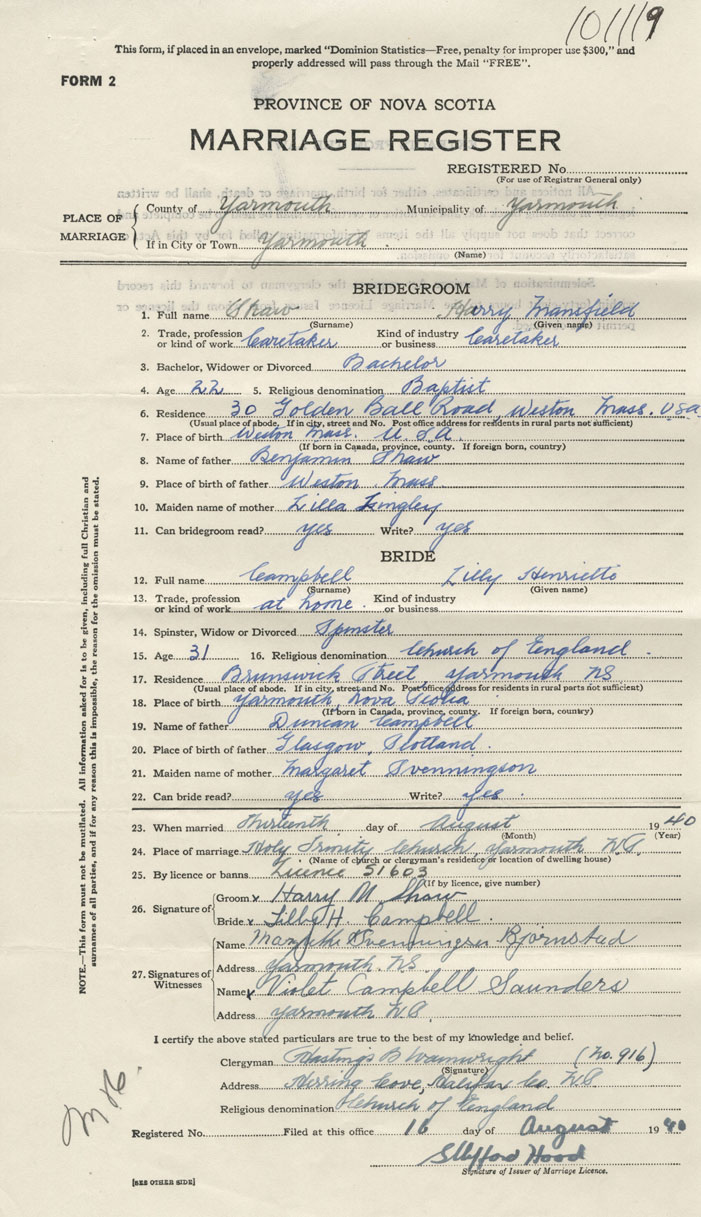 101119
This form, if placed in an envelope, marked "Dominion Statistics—Free, penalty for improper use $300," and
properly addressed will pass through the Mail "FREE".
FORM 2
PROVINCE OF NOVA SCOTIA
MARRIAGE REGISTER
REGISTERED No.
(For use of Registrar General only)
PLACE OF MARRIAGE
County of Yarmouth Municipality of Yarmouth
If in City or Town Yarmouth
(Name)
BRIDEGROOM
1. Full name Shaw Harry Mansfield
(Surname) (Given name)
2. Trade, profession or kind of work Caretaker Kind of industry or business Caretaker
3. Bachelor, Widower or Divorced Bachelor
4. Age 22 5. Religious denomination Baptist
6. Residence 30 Golden Ball Road, Weston Mass. USA
(Usual place of abode. If in city, street and No. Post office address for residents in rural parts not sufficient)
7. Place of birth Weston Mass. U.S.A.
(If born in Canada, province, county. If foreign born, country)
8. Name of father Benjamin Shaw
9. Place of birth of father Weston Mass
10. Maiden name of mother Lilla Lingley
11. Can bridegroom read? yes Write? yes
BRIDE
12. Full name Campbell Lilly Henrietta
(Surname) (Given name)
13. Trade, profession or kind of work at home Kind of industry or business
14. Spinster, Widow or Divorced Spinster
15. Age 31 16. Religious denomination Church of England
17. Residence Brunswick Street, Yarmouth NS
(Usual place of abode. If in city, street and No. Post office address for residents in rural parts not sufficient)
18. Place of birth Yarmouth, Nova Scotia
(If born in Canada, province, county. If foreign born, country)
19. Name of father Duncan Campbell
20. Place of birth of father Glasgow, Scotland
21. Maiden name of mother Margaret Svenningson
22. Can bride read? yes Write? yes
23. When married thirteenth day of August 1940
(Month) (Year)
24. Place of marriage Holy Trinity Church Yarmouth N.S.
(Name of church or clergyman's residence or location of dwelling house)
25. By licence or banns Licence 51603
(If by licence, give number)
26. Signature of
Groom x Harry M Shaw
Bride x Lilly H. Campbell
27. Signatures of Witnesses
Name Svenningsen Bjornstad
Address Yarmouth. NS
Name x Violet Campbell Saunders
Address Yarmouth N.S.
I certify the above stated particulars are true to the best of my knowledge and belief.
Clergyman Hastings B Wainwright (No. 916)
(Signature)
Address Herring Cove, Halifax Co. N.S.
Religious denomination Church of England
Registered No. Filed at this office 16 day of August 1940
Hood
Signature of Issuer of Marriage Licence.
[SEE OTHER SIDE]
NOTE.—This form must not be mutilated. All information asked for is to be given, including full Christian and
surnames of all parties, and if for any reason this is impossible, the reason for the omission must be stated.